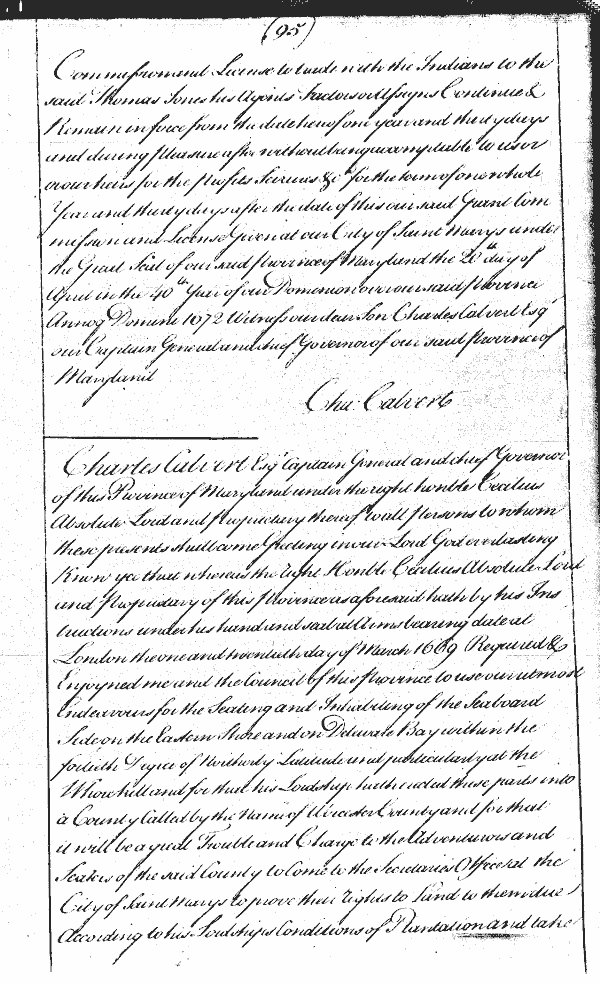 (95)
Commission and License to trade with the Indians to the
said Thomas Jones his Agents Factors or Assigns Continue &
Remain in force from the date hereof one year and thirty days
and during pleasure after without being accomptable to us or
or our heirs for the profits Services &c for the term of one whole
Year and thirty days after the date of this our said Grant Com
mission and License Given at our City of Saint Marys under
the Great Seal of our said province of Maryland the 20th day of
April in the 40th Year of our Dominion over our said province
Annoq Domini 1672 Witness our dear Son Charles Calvert Esqr
our Captain General and chief Governor of our said province of
Maryland
Cha: Calvert
Charles Calvert Esqr Captain General and chief Governor
of this Province of Maryland under the right honble Cecilius
Absolute Lord and Proprietary thereof to all persons to whom
these presents shall come Greeting in our Lord God everlasting
Know ye that whereas the right Honble Cecilius Absolute Lord
and proprietary of this province as aforesaid hath by his Ins
tructions under his hand and seal at Arms bearing date at
London the one and twentieth day of March 1669 Required &
Enjoyned me and the Council of this province to use our utmost
Endeavours for the Seating and Inhabiting of the Seaboard
Side on the Eastern Shore and on Delaware Bay within the
fortieth Degree of Northerly Latitude and particularly at the
Whorekill and for that his Lordship hath erected these parts into
a County Called by the Name of Worcester County and for that
it will be a great Trouble and Charge to the Adventurers and
Seators of the said County to Come to the Secretaries Office at the
City of Saint Marys to prove their rights to Land to them due
According to his Lordships Conditions of Plantation and take